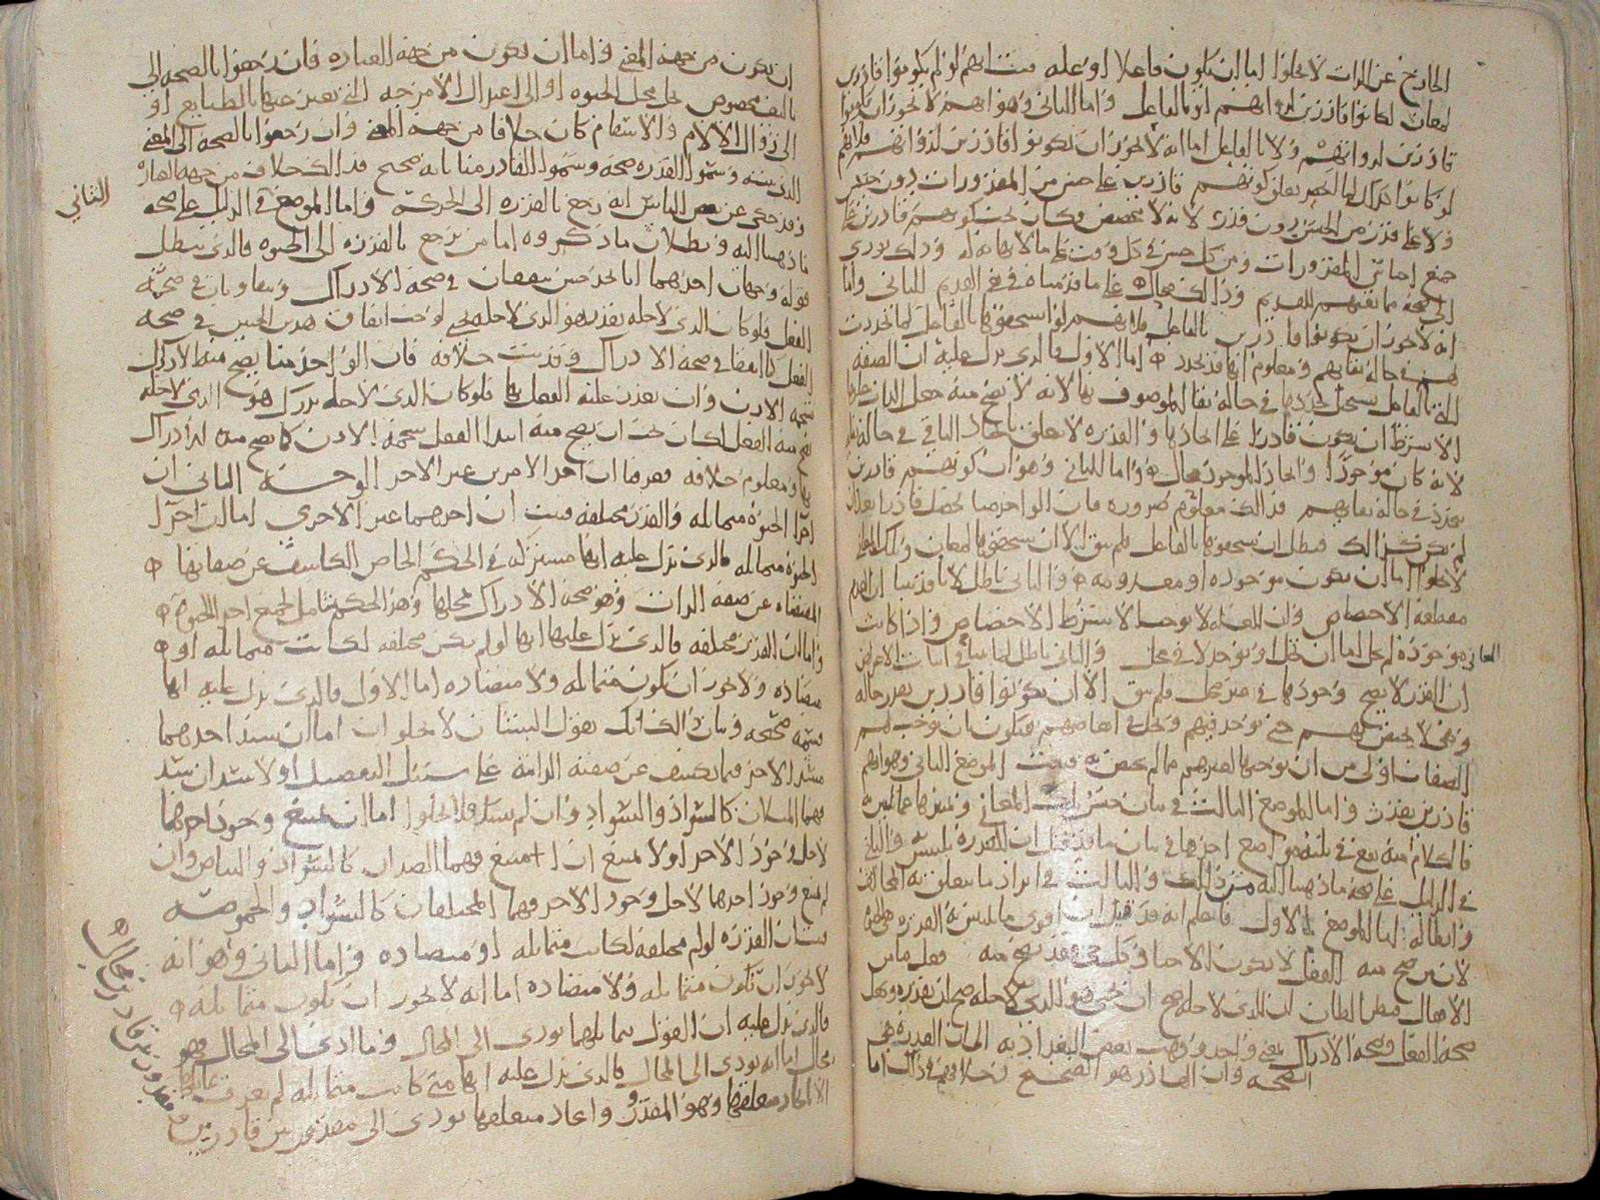 الخارج عن الذات لا يخلوا اما ان يكون فاعلا او عله فثبت انهم لو لم يكونوا قادرين
لمعان لكانوا قادرين لذواتهم او بالفاعل واما الثاني وهو انهم لا يجوز ان يكونوا
قادرين لذواتهم ولا بالفاعل اما انه لا يجوز ان يكونوا قادرين لذواتهم فلانهم
لو كانوا كذلك لما انحصر تعلق كونهم قادرين على جنس من المقدورات دون جنس
ولا على قدر من الجنس دون قدر لانه لا مخصص وكان يجب كونهم قادرين على
جميع اجناس المقدورات ومن كل جنس في كل وقت على ما لا نهاية له وذلك يودي
الى صحة ممانعتهم للقديم وذلك محال على ما قدمناه في نفي القديم الثاني واما
انه لا يجوز ان يكونوا قادرين بالفاعل فلانهم لو استحقوها بالفاعل لما تجددت
لهم في حالة بقائهم ومعلوم انها قد تجدد اما الاول فالذي يدل عليه ان الصفة
التي بالفاعل يستحيل تجددها في حالة بقا الموصوف بها لانه لا يصح منه جعل الذات عليها
الا بشرط ان يكون قادرا على ايجادها والقدرة لا تتعلق بايجاد الباقي في حالة بقائه
لانه كان موجودا وايجاد الموجود محال واما الثاني وهو ان كونهم قادرين
يتجدد في حالة بقائهم فذلك معلوم ضرورة فان الواحد منا يحصل قادرا بعد ان
لم يكن كذلك فبطل ان يستحقوها بالفاعل فلم يبق الا ان يستحقوها لمعان وتلك المعاني
لا تخلوا اما ان تكون موجودة او معدومة والثاني باطل لانا قد بينا ان العدم
مقطعة الاختصاص وان العلة لا توجب الا بشرط الاختصاص واذا كانت
موجودة لم تخل اما ان تحل او توجد لا في محل والثاني باطل لما سياتي في اثبات الاعراض
المعاني
ان القدر لا يصح وجودها في غير محل فلم يبق الا ان يكونوا قادرين بقدر حالة
وهي لا تختص بهم حتى توجد فيهم وتحل في ابعاضهم فتكون بان توجب لهم
الصفات اولى من ان توجبها لغيرهم ممن لم تختص به فثبت الموضع الثاني وهو انهم
قادرين بقدر واما الموضع الثالث في بيان جنس تلك المعاني وتميزها عما يلتبس به
فالكلام منه يقع في ثلثة مواضع احدها في بيان ما قد قيل ان القدرة تلتبس والثاني
في الدليل على صحة ما ذهبنا اليه من ذلك والثالث في ايراد ما يتعلق به المخالف
وابطاله اما الموضع الاول فاعلم انه قد قيل ان اقوى ما يلتبس به القدرة هي الحيوة
لان من صح منه الفعل لا يكون الا حيا وكل حي فقد يصح منه فعل ما من
الافعال فيظن الظان ان الذي لاجله صح ان يحيى هو الذي لاجله صح ان يقدر وهل
صحة الفعل وصحة الادراك بمعنى واحد وذهب بعض البغداديه الى ان القدرة هي
الصحة وان القادر هو الصحيح وخلافهم في ذلك اما
ان يكون من جهة المعنى واما ان يكون من جهة العبارة فان رجعوا بالصحة الى
تاليف مخصوص في محل الحيوه او الى اعتدال الامزجه التي تعبر عنها بالطبايع او
الى زوال الالام والاسقام كان خلافا من جهة المعنى وان رجعوا بالصحة الى المعنى
الذي نثبته وسموا القدرة صحة وسموا القادر منا بانه صحيح فذلك خلاف من جهة العبارة
وقد حكي عن بعض الناس انه رجع بالقدرة الى الحركة واما الموضع الثاني في الدليل على صحة
الثاني
ما ذهبنا اليه وبطلان ما ذكروه اما من يرجع بالقدرة الى الحيوة فالذي يبطل
قوله وجهان احدهما انا نجد حيين يتفقان في صحة الادراك ويتفاوتان في صحة
الفعل فلو كان الذي لاجله يقدر هو الذي لاجله يحيى لوجب اتفاق هذين الحيين في صحة
الفعل كما اتفقا في صحة الادراك وقد ثبت خلافه فان الواحد منا يصح منه الادراك
بشحمة الاذن وان تعذر عليه الفعل بها فلو كان الذي لاجله يدرك هو الذي لاجله
يصح منه الفعل لكان يجب ان يصح منه ابتدا الفعل بشحمة الاذن كما يصح منه الادراك
بها ومعلوم خلافه فعرفنا ان احد الامرين غير الاخر الوجه الثاني ان
اجزا الحيوة متماثلة والقدر مختلفة فثبت ان احدهما غير الاخرى اما ان اجزا
الحيوة متماثلة فالذي يدل عليه انها مشتركة في الحكم الخاص الكاشف عن صفاتها
المقتضاه عن صفة الذات وهو صحة الادراك بمحلها وهذا الحكم شامل لجميع اجزا الحيوة
واما ان القدر مختلفة فالذي يدل عليها انها لو لم تكن مختلفة لكانت متماثلة او
متضادة ولا يجوز ان تكون متماثلة ولا متضادة اما الاول فالذي يدل عليه انها
قسمة صحيحة وبيان ذلك انك تقول الشيئان لا يخلوان اما ان يسد احدهما
مسد الاخر فيما يكشف عن صفته الذاتية على سبيل التفصيل او لا يسد ان سد
فهما المثلان كالسواد والسواد وان لم يسد فلا يخلوا اما ان يمتنع وجود احدهما
لاجل وجود الاخر او لا يمتنع ان امتنع فهما الضدان كالسواد والبياض وان
لم يمتنع وجود احدهما لاجل وجود الاخر فهما المختلفان كالسواد والحموضة
فبان القدرة لو لم تكن مختلفة لكانت متماثلة او متضادة واما الثاني وهو انه
لا يجوز ان تكون متماثلة ولا متضادة اما انه لا يجوز ان تكون متماثلة
فالذي يدل عليه ان القول بتماثلها يودي الى المحال وما ادى الى المحال فهو
محال اما انه يودي الى المحال فالذي يدل عليه انها متى كانت متماثلة لم يتعرف تماثلها
الا باتحاد متعلقها وهو المقدور واتحاد متعلقها يودي الى مقدور بين قادرين
مقدور بين قادرين محال